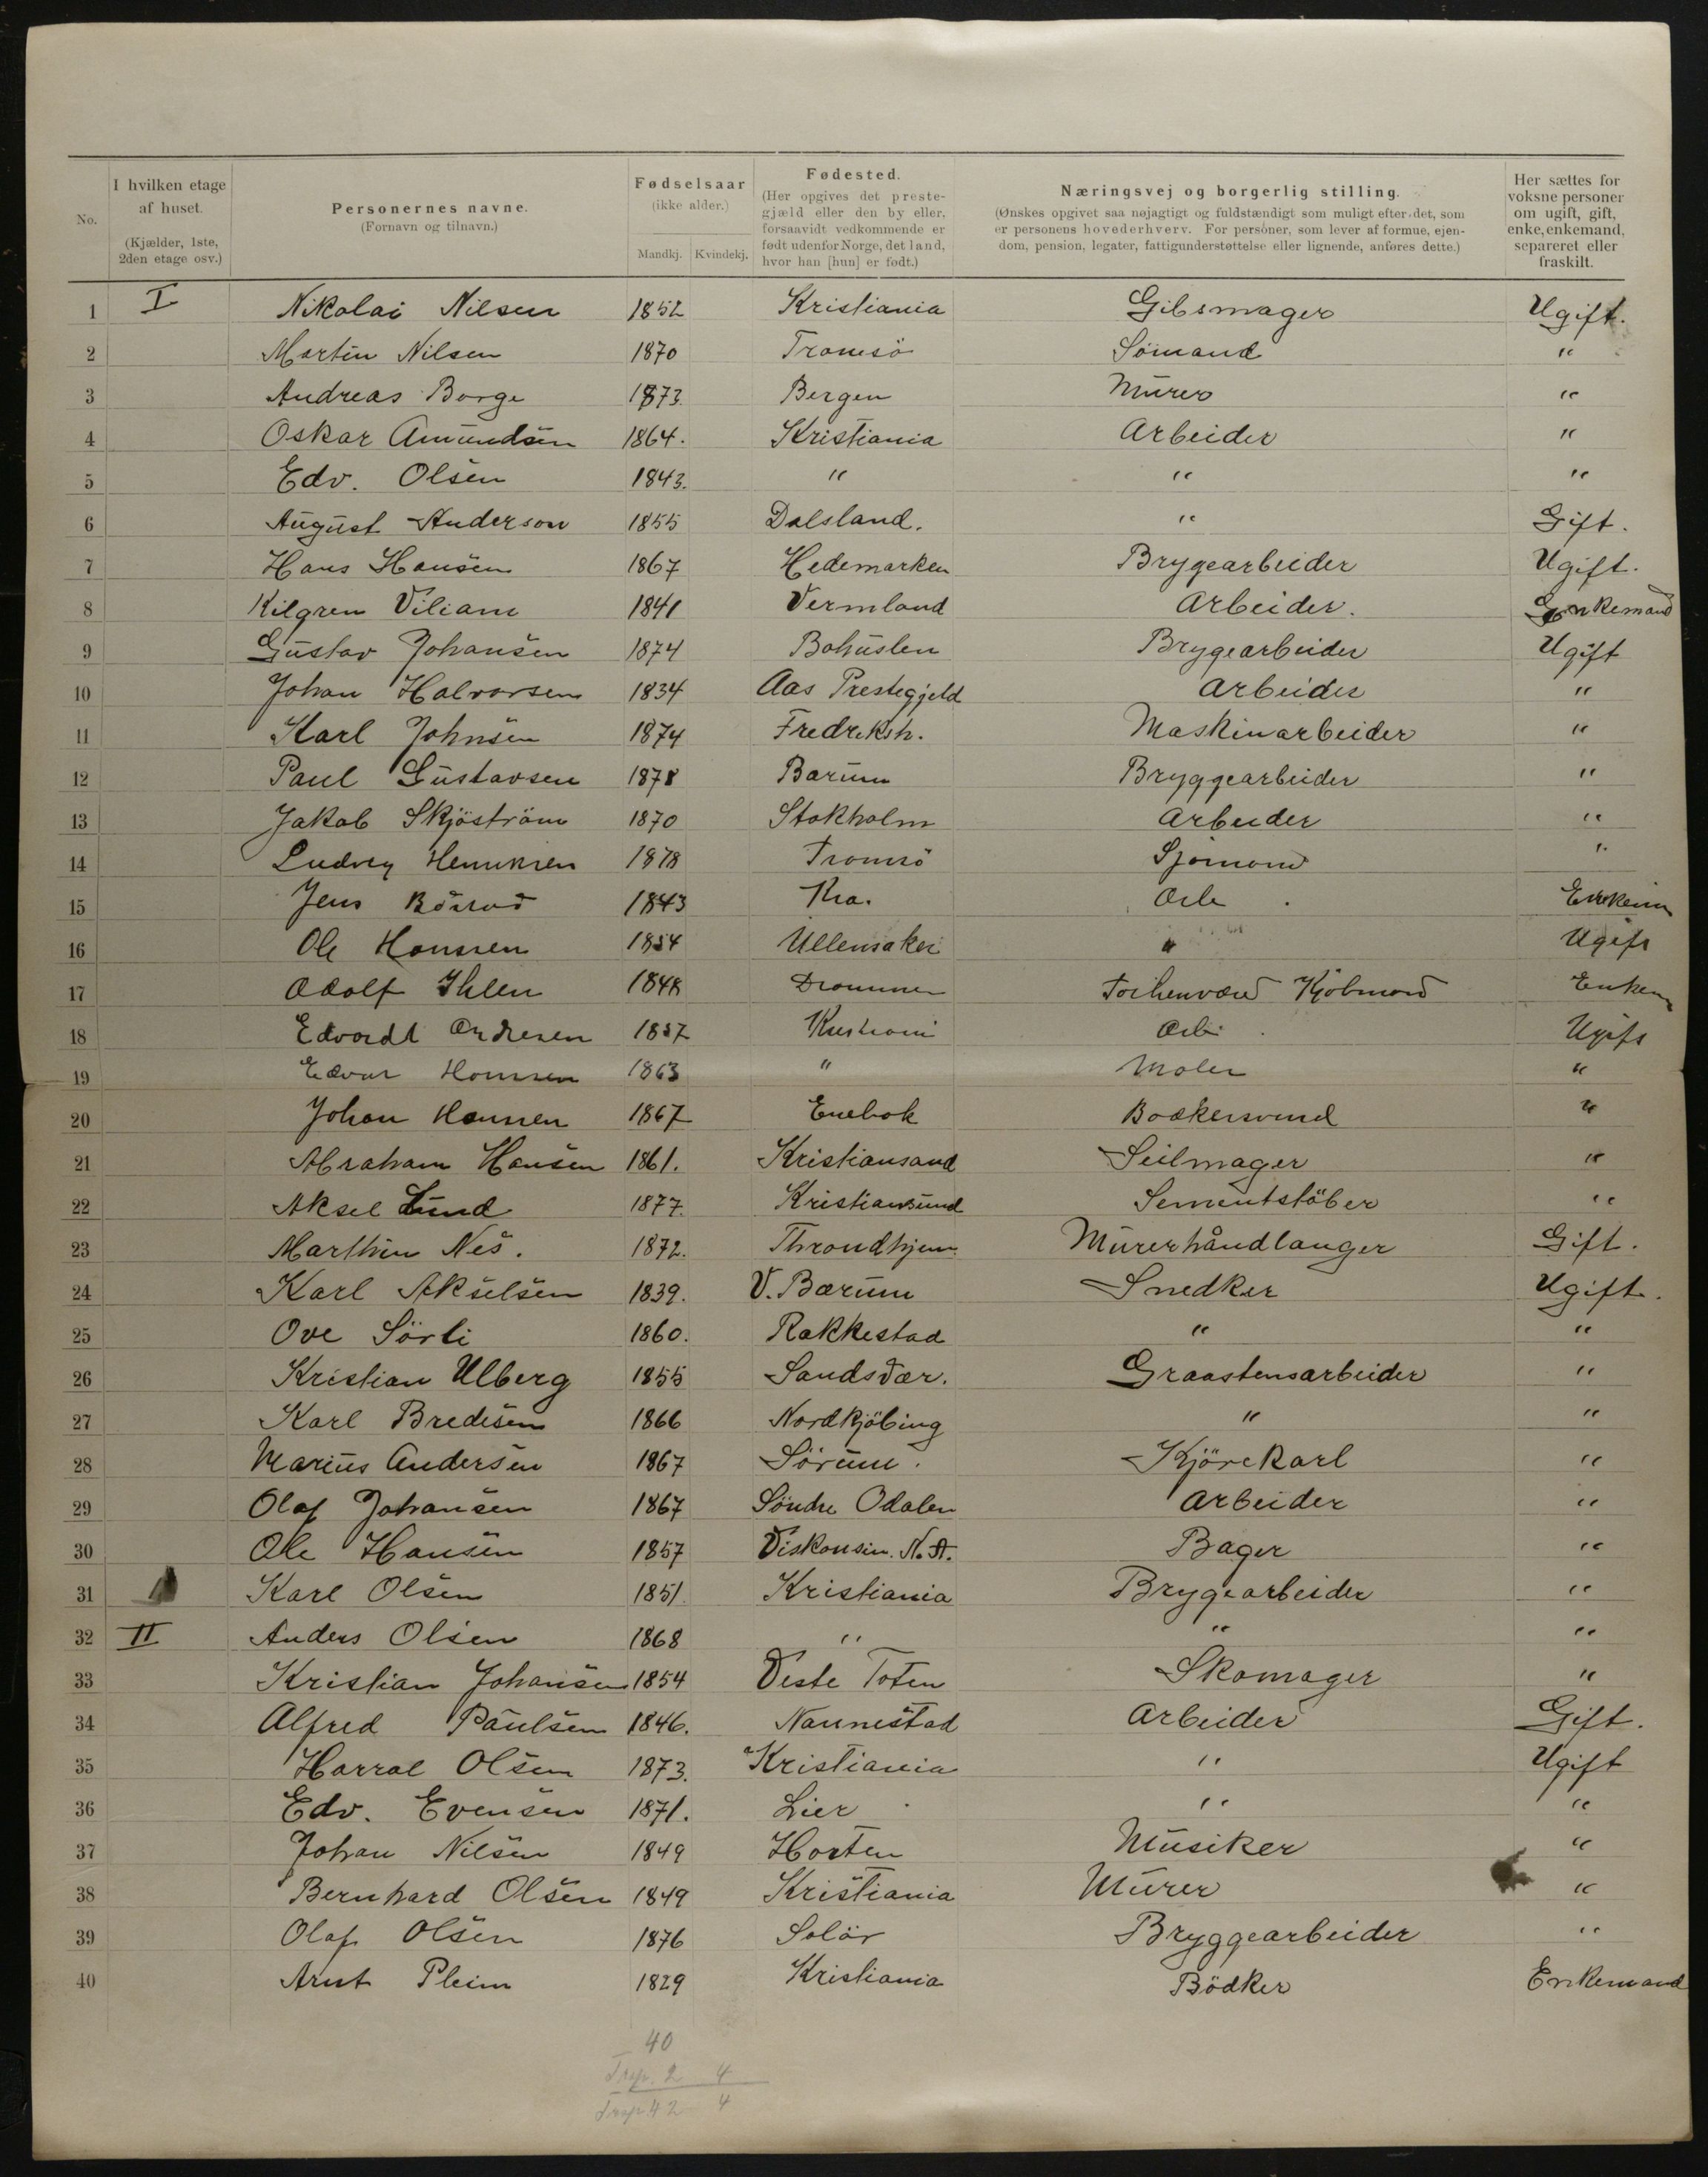 No.
I hvilken etage af huset. (Kjælder, 1ste, 2den etage osv.)
Personernes navne. (Fornavn og tilnavn.)
Fødselsaar (ikke alder.) Mandkj. Kvindekj.
Fødested. (Her opgives det prestegjæld eller den by eller, forsaavidt vedkommende er født udenfor Norge, det land, hvor han [hun] er født.)
Næringsvej og borgerlig stilling. (Ønskes opgivet saa nøjagtigt og fuldstændigt som muligt efter det, som er personens hovederhverv. For personer, som lever af formue, ejendom, pension, legater, fattigunderstøttelse eller lignende, anføres dette.)
Her sættes for voksne personer om ugift, gift, enke, enkemand, separeret eller fraskilt.
1 I Nikolai Nilsen 1852 Kristiania Gibsmager Ugift.
2 Martin Nilsen 1870 Tromsö Sömand "
3 Andreas Borge 1873. Bergen Murer "
4 Oskar Amundsen 1864. Kristiania Arbeider "
5 Edv. Olsen 1843. " " "
6 August Anderson 1855 Dalsland. " Gift.
7 Hans Hansen 1867 Hedemarken Brygearbeider Ugift.
8 Kilgren Viliam 1841 Vermland Arbeider. Enkemand
9 Gustav Johansen 1874 Bohuslen Brygearbeider Ugift
10 Johan Halvorsen 1834 Aas Prestegjeld Arbeider "
11 Karl Johnsen 1874 Fredriksh. Maskinarbeider "
12 Paul Gustavsen 1878 Barum Bryggearbeider "
13 Jakob Skjöström 1870 Stokholm Arbeider "
14 Ludvig Henriksen 1878 Tromsö Sjömand "
15 Jens 1843 Kra. Arb. Enkem
16 Ole Hanssen 1854 Ullensaker " Ugift
17 Adolf Ihlen 1848 Drammen Kjöbmand Enkem
18 Edvardt Andresen 1857 Kristiani Arb. Ugift
19 Edvar Hanssen 1863 " Maler "
20 Johan Hanssen 1867 Enebak Bödkersvend "
21 Abraham Hansen 1861. Kristiansand Seilmager "
22 Aksel Lund 1877. Kristiansund Sementstöber "
23 Marthin Nes. 1872. Throndhjem. Murerhåndlanger Gift.
24 Karl Akselsen 1839. V. Bærum Snedker Ugift.
25 Ove Sörli 1860. Rakkestad " "
26 Kristian Ulberg 1855 Sandsvær. Graastensarbeider "
27 Karl Bredesen 1866 Nordkjöbing " "
28 Marius Andersen 1867 Sörum. Kjörekarl "
29 Olaf Johansen 1867 Söndre Odalen Arbeider "
30 Ole Hansen 1857 Viskonsin. N. A. Bager "
31 Karl Olsen 1851. Kristiania Brygearbeider "
32 II Anders Olsen 1868 " " "
33 Kristian Johansen 1854 Veste Toten Skomager "
34 Alfred Paulsen 1846. Nannestad Arbeider Gift.
35 Harral Olsen 1873. Kristiania " Ugift
36 Edv. Evensen 1871. Lier " "
37 Johan Nilsen 1849 Horten Musiker "
38 Bernhard Olsen 1849 Kristiania Murer "
39 Olaf Olsen 1876 Solör Bryggearbeider "
40 Arnt Pleim 1829 Kristiania Bödker Enkemand
40
2 4
42 4